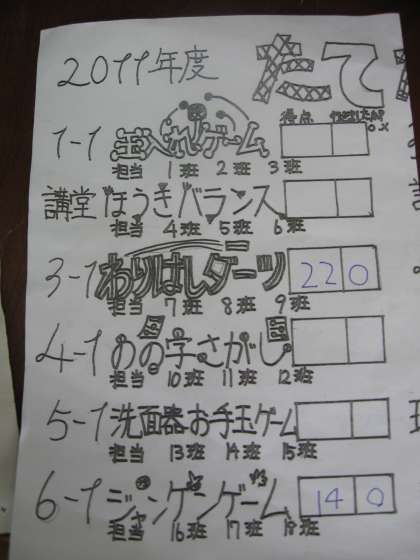 2011年度 たて
得点 ○×
1-1 玉入れゲーム
担当 1班 2班 3班
講堂 ほうきバランス
担当 4班 5班 6班
3-1 わりばしダーツ 22 0
担当 7班 8班 9班
4-1 のの字さがし
担当 10班 11班 12班
5-1 洗面器お手玉ゲーム
担当 13班 14班 15班
6-1 ジャンケンゲーム 14 0
担当 16班 17班 18班